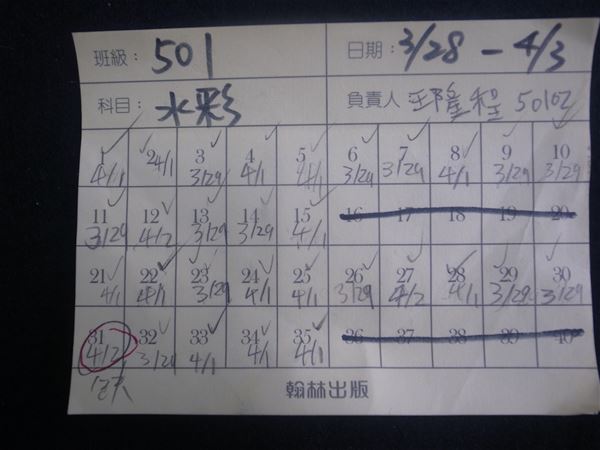 班級：501 日期：3/28 - 4/3
科目：水彩 負責人 程 50102
1 2 3 4 5 6 7 8 9 10
4/1 4/1 3/29 4/1 4/1 3/29 3/29 4/1 3/29 3/29
11 12 13 14 15 16 17 18 19 20
3/29 4/2 3/29 3/29 4/1
21 22 23 24 25 26 27 28 29 30
4/1 4/1 3/29 4/1 4/1 3/29 4/2 4/1 3/29 3/29
31 32 33 34 35 36 37 38 39 40
4/2 3/29 4/1 4/1 4/1
翰林出版